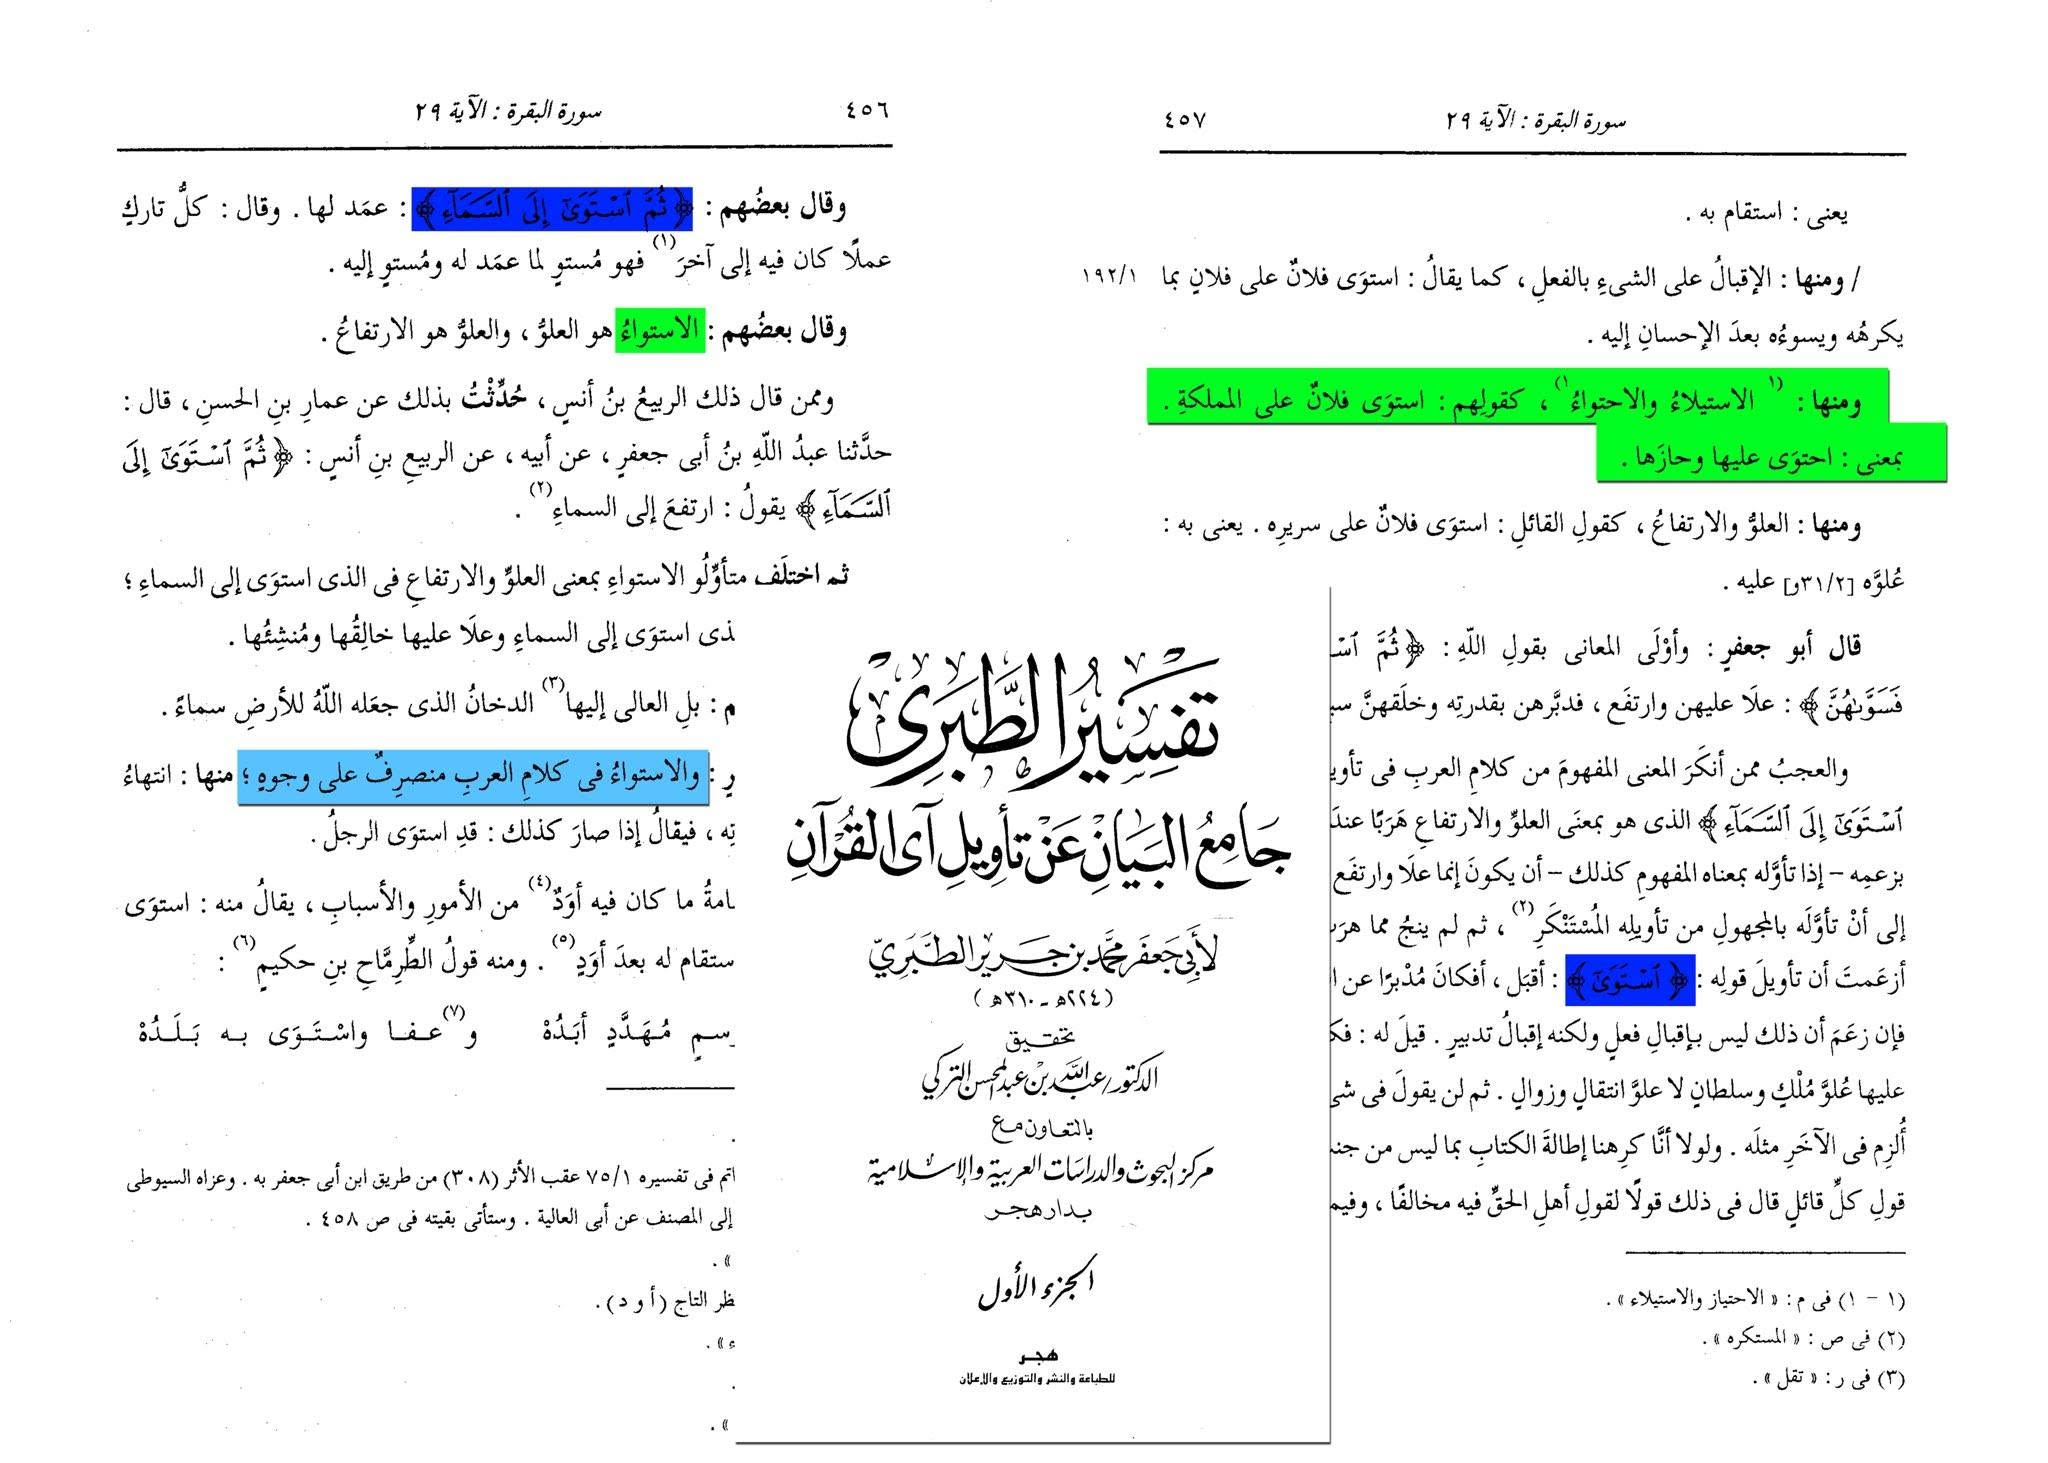 سورة البقرة : الآية ٢٩
٤٥٦
وقال بعضُهم : ﴿ثُمَّ ٱسْتَوَىٰٓ إِلَى ٱلسَّمَآءِ﴾ : عمَد لها . وقال : كلُّ تاركٍ
عملًا كان فيه إلى آخرَ(١) فهو مُستوٍ لما عمَد له ومُستوٍ إليه .
وقال بعضُهم : الاستواءُ هو العلوُّ ، والعلوُّ هو الارتفاعُ .
وممن قال ذلك الربيعُ بنُ أنسٍ ، حُدِّثْتُ بذلك عن عمارِ بنِ الحسنِ ، قال :
حدَّثنا عبدُ اللّهِ بنُ أبى جعفرٍ ، عن أبيه ، عن الربيعِ بنِ أنسٍ : ﴿ثُمَّ ٱسْتَوَىٰٓ إِلَى
ٱلسَّمَآءِ﴾ يقولُ : ارتفعَ إلى السماءِ(٢) .
ثم اختلَف متأوِّلُو الاستواءِ بمعنى العلوِّ والارتفاعِ فى الذى استوَى إلى السماءِ ؛
ذى استوَى إلى السماءِ وعلَا عليها خالِقُها ومُنشِئُها .
م : بلِ العالى إليها(٣) الدخانُ الذى جعَله اللّهُ للأرضِ سماءً .
رٍ : والاستواءُ فى كلامِ العربِ منصرِفٌ على وجوهٍ ؛ منها : انتهاءُ
تِه ، فيقالُ إذا صارَ كذلك : قدِ استوَى الرجلُ .
امةُ ما كان فيه أوَدٌ(٤) من الأمورِ والأسبابِ ، يقالُ منه : استوَى
ستقام له بعدَ أوَدٍ(٥) . ومنه قولُ الطِّرِمَّاحِ بنِ حكيمٍ(٦) :
سمٍ مُهَدَّدٍ أبَدُهْ و(٧)عفا واسْتَوَى به بَلَدُهْ
اتم فى تفسيره ٧٥/١ عقب الأثر (٣٠٨) من طريق ابن أبى جعفر به . وعزاه السيوطى
إلى المصنف عن أبى العالية . وستأتى بقيته فى ص ٤٥٨ .
» .
ظر التاج (أ و د) .
ء » .
» .
تفسير الطبرى
جامع البيان عن تأويل آى القرآن
لأبى جعفر محمد بن جرير الطبرى
(٢٢٤هـ - ٣١٠هـ)
تحقيق
الدكتور/عبد الله بن عبد المحسن التركى
بالتعاون مع
مركز البحوث والدراسات العربية والإسلامية
بدار هجر
الجزء الأول
هجر
للطباعة والنشر والتوزيع والإعلان
سورة البقرة : الآية ٢٩
٤٥٧
يعنى : استقام به .
/ ومنها : الإقبالُ على الشىءِ بالفعلِ ، كما يقالُ : استوَى فلانٌ على فلانٍ بما ١٩٢/١
يكرهُه ويسوءُه بعدَ الإحسانِ إليه .
ومنها : (١الاستيلاءُ والاحتواءُ١) ، كقولِهم : استوَى فلانٌ على المملكةِ .
بمعنى : احتوَى عليها وحازَها .
ومنها : العلوُّ والارتفاعُ ، كقولِ القائلِ : استوَى فلانٌ على سريرِه . يعنى به :
عُلوَّه [٣١/٢و] عليه .
قال أبو جعفرٍ : وأوْلَى المعانى بقولِ اللّهِ : ﴿ثُمَّ ٱسْ
فَسَوَّىٰهُنَّ﴾ : علَا عليهن وارتفَع ، فدبَّرهن بقدرتِه وخلَقهنَّ سب
والعجبُ ممن أنكَرَ المعنى المفهومَ من كلامِ العربِ فى تأوي
ٱسْتَوَىٰٓ إِلَى ٱلسَّمَآءِ﴾ الذى هو بمعنَى العلوِّ والارتفاعِ هَرَبًا عند
بزعمِه – إذا تأوَّله بمعناه المفهومِ كذلك – أن يكونَ إنما علَا وارتفَع
إلى أنْ تأوَّلَه بالمجهولِ من تأويلِه المُسْتَنْكَرِ(٢) ، ثم لم ينجُ مما هرَب
أزعَمتَ أن تأويلَ قولِه : ﴿ٱسْتَوَىٰٓ﴾ : أقبَل ، أفكانَ مُدْبرًا عن ا
فإن زعَمَ أن ذلك ليس بإقبالِ فعلٍ ولكنه إقبالُ تدبيرٍ . قيلَ له : فك
عليها عُلوَّ مُلْكٍ وسلطانٍ لا علوَّ انتقالٍ وزوالٍ . ثم لن يقولَ فى شى
أُلزِم فى الآخَرِ مثلَه . ولولا أنَّا كرِهنا إطالةَ الكتابِ بما ليس من جنس
قولِ كلِّ قائلٍ قال فى ذلك قولًا لقولِ أهلِ الحقِّ فيه مخالفًا ، وفيم
(١ - ١) فى م : « الاحتياز والاستيلاء » .
(٢) فى ص : « المستكره » .
(٣) فى ر : « تقل » .